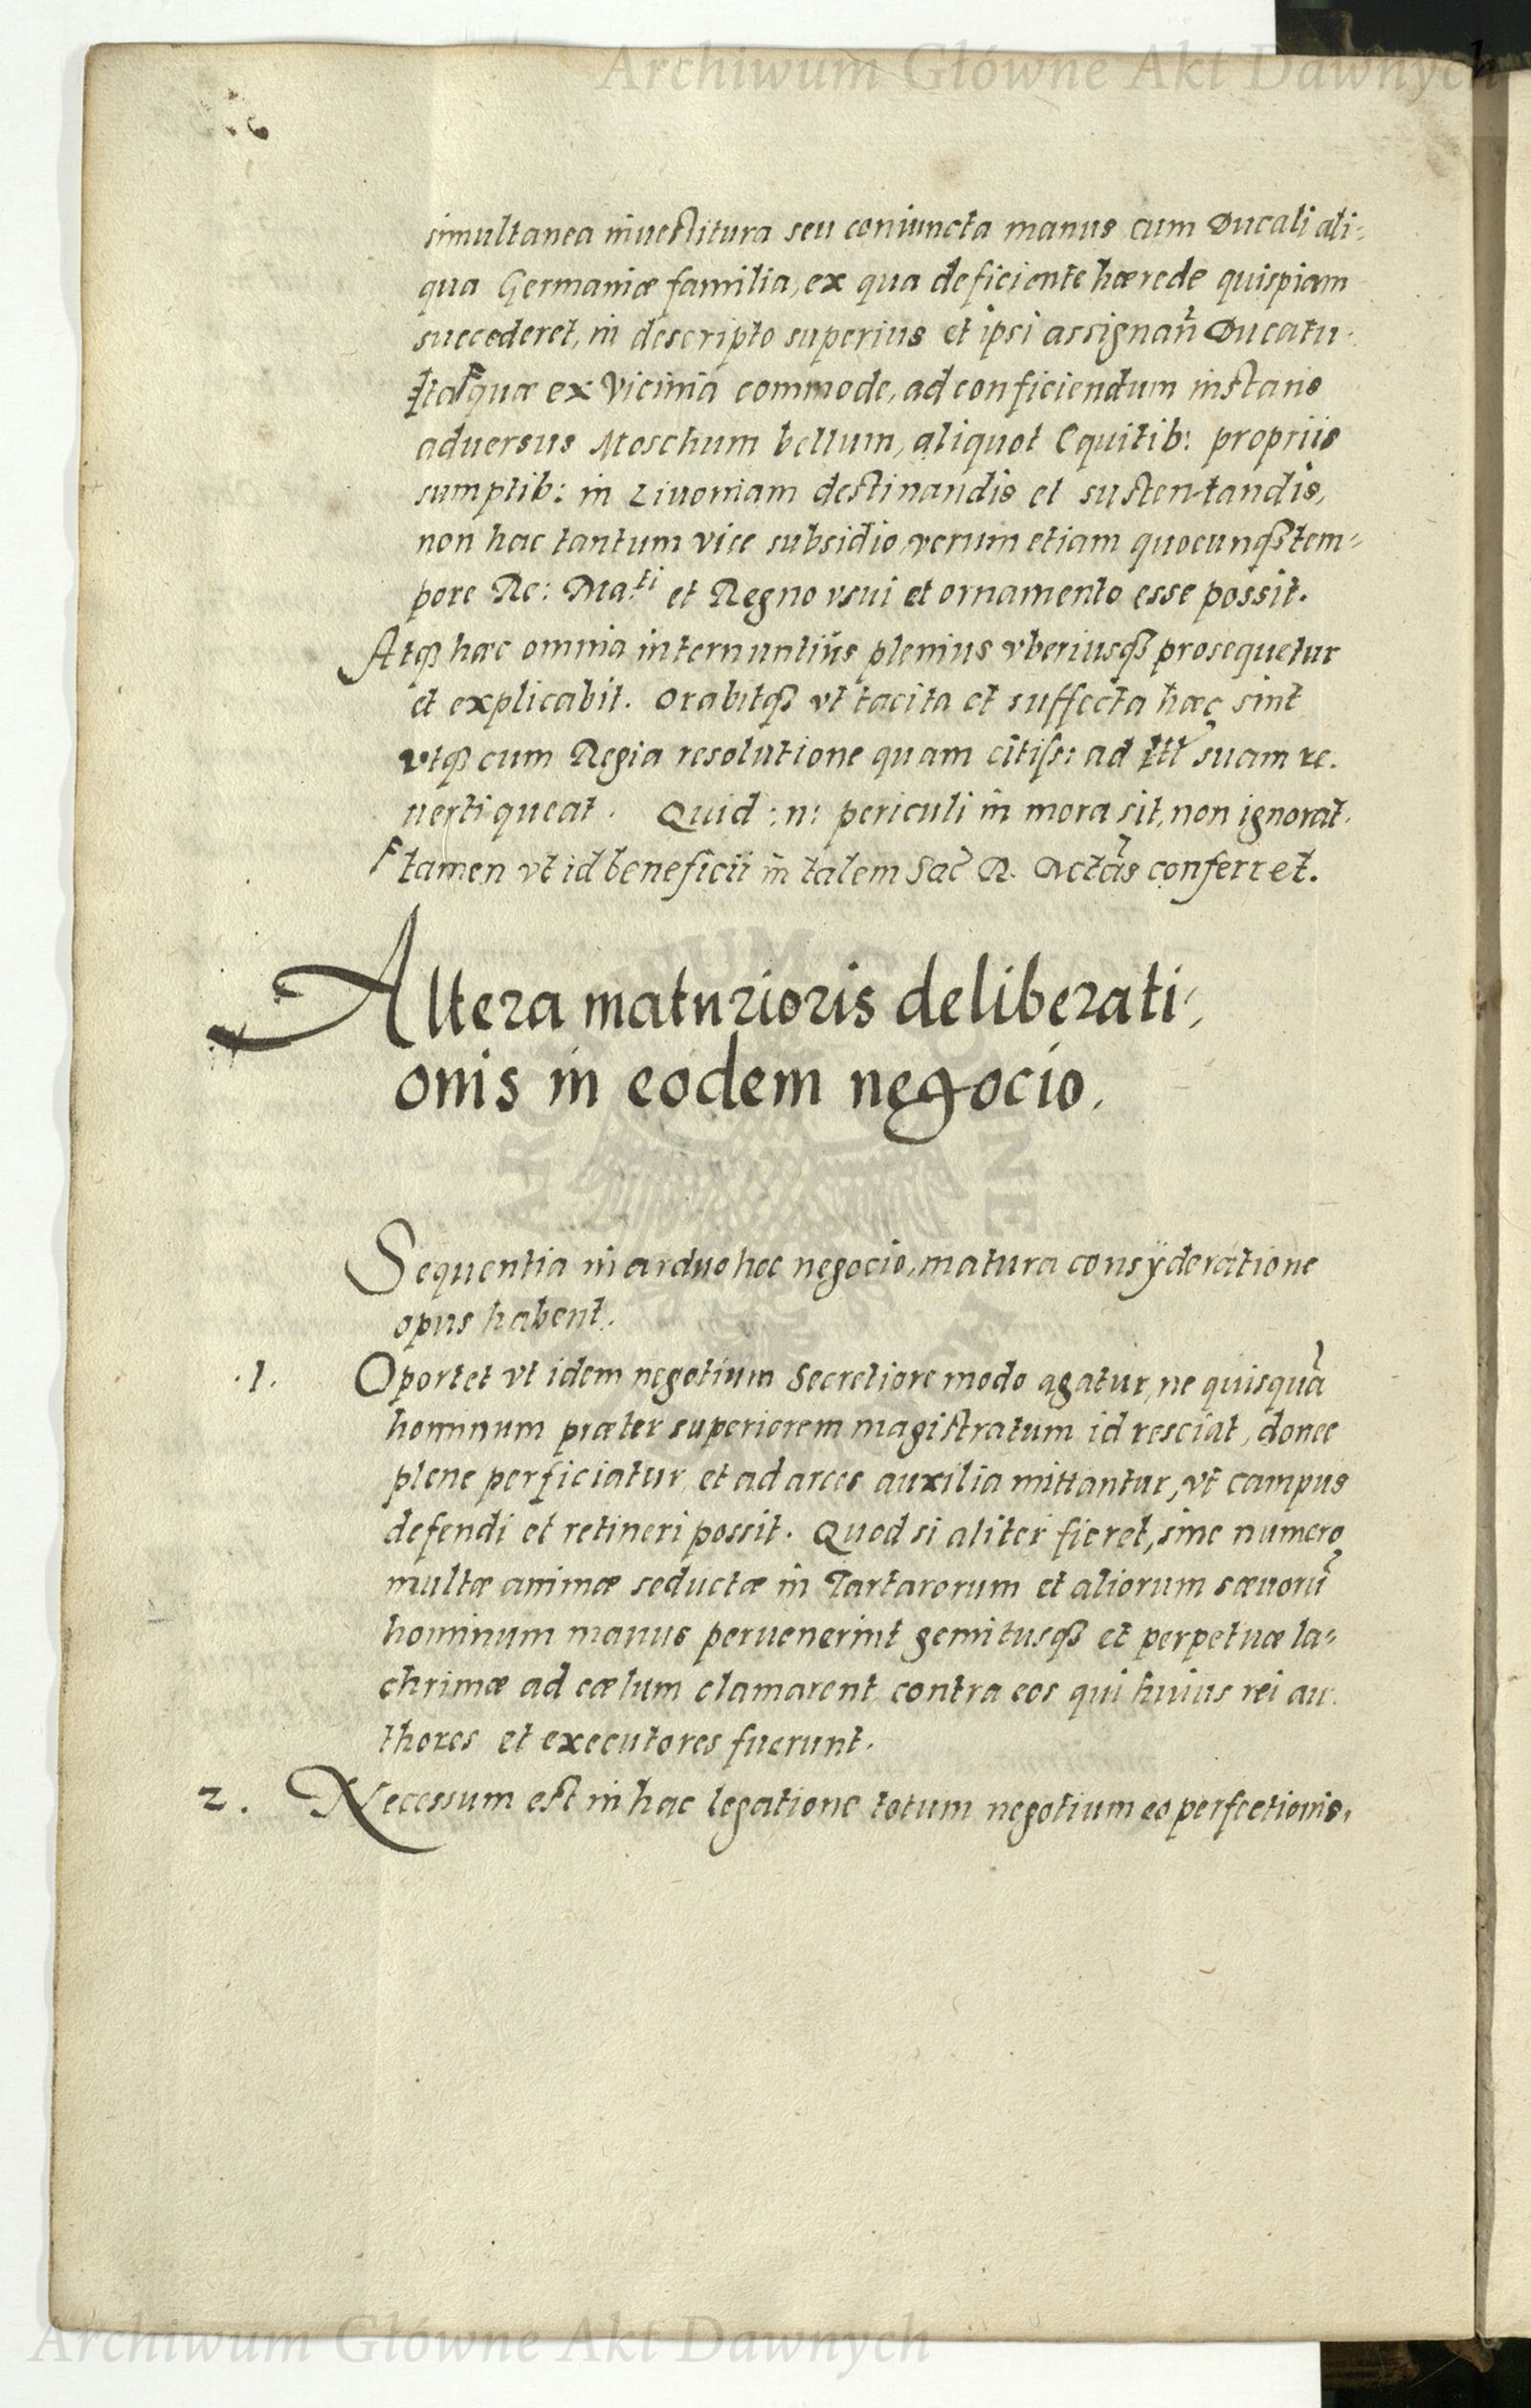 Archiwum Główne Akt Dawnych
simultanea inuestitura seu coniuncta manus cum Ducali ali=
qua Germaniæ familia, ex qua deficiente hærede quispiam
succederet, in descripto superius et ipsi assignañ Ducatu.
quæ ex vicinia commode, ad conficiendum instans
aduersus Moschum bellum, aliquot Equitib: propriis
sumptib: in Liuoniam destinandis et sustentandis,
non hac tantum vice subsidio, verum etiam quocunqȝ tem=
pore Re: Ma.ti et Regno vsui et ornamento esse possit.
Atqȝ hæc omnia internuntius plenius vberiusqȝ prosequetur
et explicabit. Orabitqȝ vt tacita et suffecta hæc sint
vtqȝ cum Regia resolutione quam citiss: ad suam re.
uerti queat. Quid :n: periculi in mora sit, non ignorat.
tamen vt id beneficii in talem Sac̃ R. conferret.
Altera maturioris deliberati=
onis in eodem negocio.
Sequentia in arduo hoc negocio, matura consÿderatione
opus habent.
.1. Oportet vt idem negotium Secretiore modo agatur, ne quisquã
hominum præter superiorem magistratum id resciat, donec
plene perficiatur, et ad arces auxilia mittantur, vt campus
defendi et retineri possit. Quod si aliter fieret, sine numero
multæ animæ seductæ in Tartarorum et aliorum sæuorũ
hominum manus peruenerint gemitusqȝ et perpetuæ la=
chrimæ ad cælum clamarent, contra eos qui huius rei au.
thores et executores fuerunt.
2. Necessum est in hac legatione totum negotium eo perfectionis,
Archiwum Główne Akt Dawnych